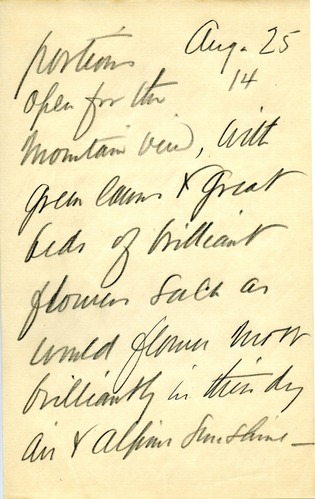 Aug. 25
14
portions
open for the
mountain view, with
green lawns & great
beds of brilliant
flowers such as
would flower most
brilliantly in this dry
air & alpine sunshine —